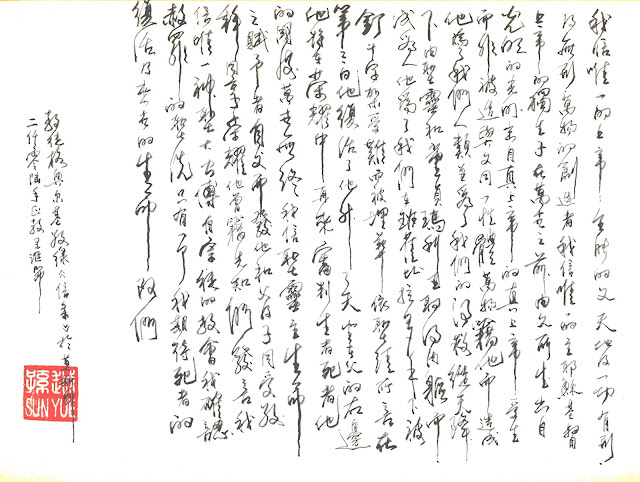 我信唯一的上帝全能的父天地及一切有形
及無形萬物的創造者我信唯一的主耶穌基督
上帝的獨生子在萬世之前由父所生出自
光明的光明來自真上帝的真上帝生
而非被造與父同一性體萬物藉他而造成
他為了我們人類並為了我們的得救從天降
下由聖靈和童貞瑪利亞取得肉軀
成為人他為了我們在比下被
釘十字架受難而被埋葬依聖經所言在
第三日他復活了他升了天坐在父的右邊
他將在榮耀中再來審判生者死者他
的國度萬世無終我信聖靈主生命
之賦予者自父而發他和父及子同受敬
拜同享榮耀他曾藉先知們發言我
信唯一神聖大公傳自宗徒的教會我確認
赦罪的聖洗只有一個我期待死者的
復活及來世的生命阿們
敬錄信於
二仟零陸年正教
孫越
SUN YUE